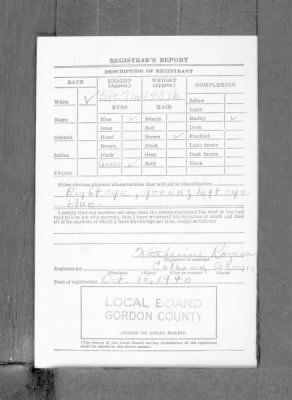 REGISTRAR'S REPORT
DESCRIPTION OF REGISTRANT
RACE HEIGHT (Approx.) WEIGHT (Approx.) COMPLEXION
White ✓ 5 ft. 7 in. 143 lb Sallow
EYES HAIR Light
Negro Blue ✓ Blonde Ruddy ✓
Gray Red Dark
Oriental Hazel Brown ✓ Freckled
Brown Black Light brown
Indian Black Gray Dark brown
Green ✓ Bald Black
Filipino
Other obvious physical characteristics that will aid in identification
Right eye, green; left eye
blue.
I certify that my answers are true; that the person registered has read or has had
read to him his own answers; that I have witnessed his signature or mark and that
all of his answers of which I have knowledge are true, except as follows:
(Signature of registrar)
Registrar for Calhoun
(Precinct) (Ward) (City or county) (State)
Date of registration Oct. 16, 1940
LOCAL BOARD
GORDON COUNTY
(STAMP OF LOCAL BOARD)
(The stamp of the Local Board having jurisdiction of the registrant
shall be placed in the above space)